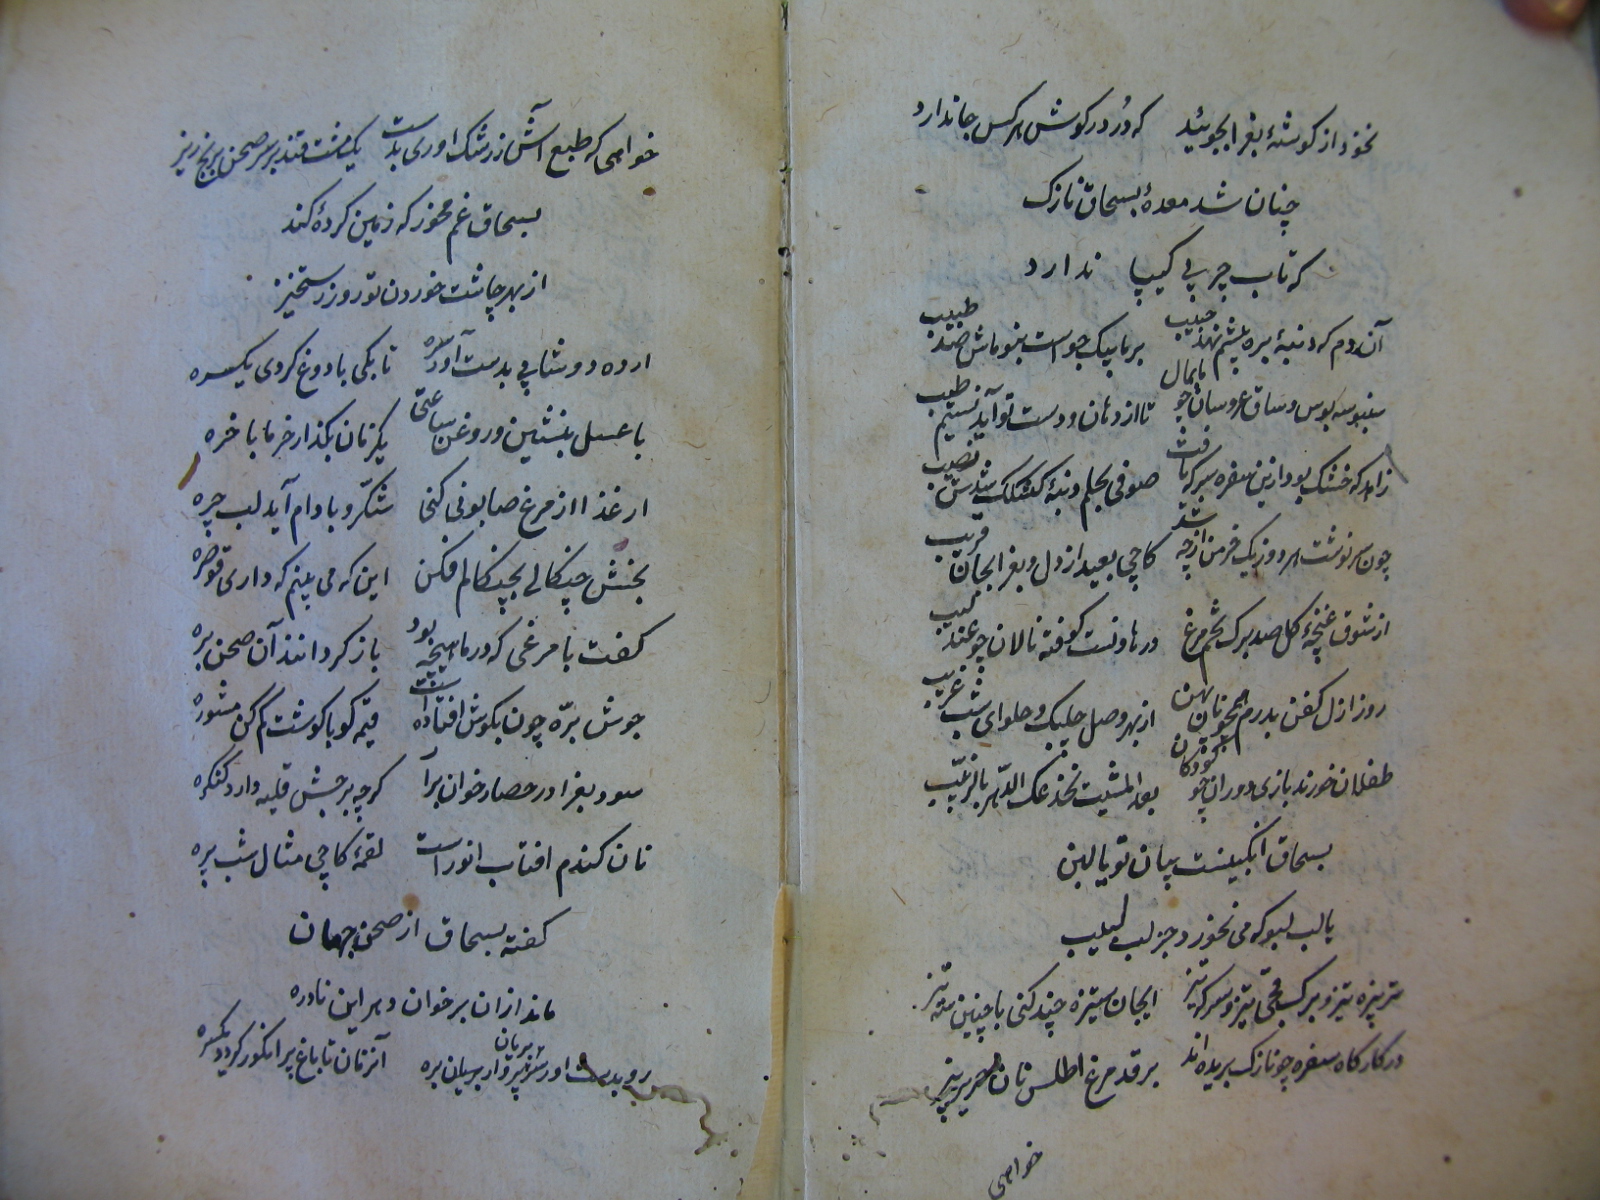 نخود از کوشهٔ بغرا بجوئید که دُر در کوش هر کس جا ندارد
چنان شد معدهٔ بسحاق نازک
که تاب چربی کیپا ندارد
آن دم که دنبهٔ بره پیشم نهد حبیب بر ما پیک جو است بنو ماش صد طبیب
سنبوسه بوس و ساق عروسان پایمال جو تا از دهان و دست تو آید نسیم طیب
زاهد که خشک بود ازین سفره سر که تافت صوفی بحلم دنبهٔ کشکک شدش نصیب
چون سرنوشت هر دو ز یک خرمن از چه شد کاچی بعید از دل و بغرا بجان قریب
از شوق غنچهٔ کل صد برک تخم مرغ در هاونست کوفته نالان چو عندلیب
روز ازل کفن بدرم همچو نان پهن از بهر وصل حلبک و حلوای شب غریب
طفلان خورند بازی دوران چو کودکان بعد المشیت تخذعک الدهر بالزبیب
بسحاق انکبینست بیان تو یا لبن
یا لب لبو که می نخورد جز لب لبیب
تربزه تیز و برک تیز و سرکه تیز ایجان ستیزه چند کنی با چنین سه تیز
در کارکاه سفره چو نازک بریده اند بر قد مرغ اطلس نان
خواهی
خواهی که طبع آش زرشک اوری بدست یکمشت قند بر سر صحن برنج ریز
بسحاق غم مخور که زمین کردهٔ کند
از بهر چاشت خوردن تو روز رستخیز
ارده دوشابی بدست آور سره تا بکی با دوغ کردی یکسره
با عسل بنشین و روغن ساعتی یکزمان بکذار خرما با خره
ار غذا از مرغ صابونی کنی شکّر و بادام آید لب چره
بخش چنکالی بچنکالم فکن این که می بینم که داری قوصره
کفت با مرغی که در ماهیچه بود باز کردانند آن صحن بره
جوش برّه چون بکوش افتاده است قیمه کو با کوشت کم کن مشوره
سود بغرا در حصار خوان برآ کرچه برجش قلیه دارد کنکره
نان کندم افتاب انور است لقمهٔ کاچی مثال شب پره
کفته بسحاق از صحن جهان
ماند ازان بر خوان دهر این نادره
رو بدست اور بریان بره آنزمان تا باغ پر انکور کردد یکسره